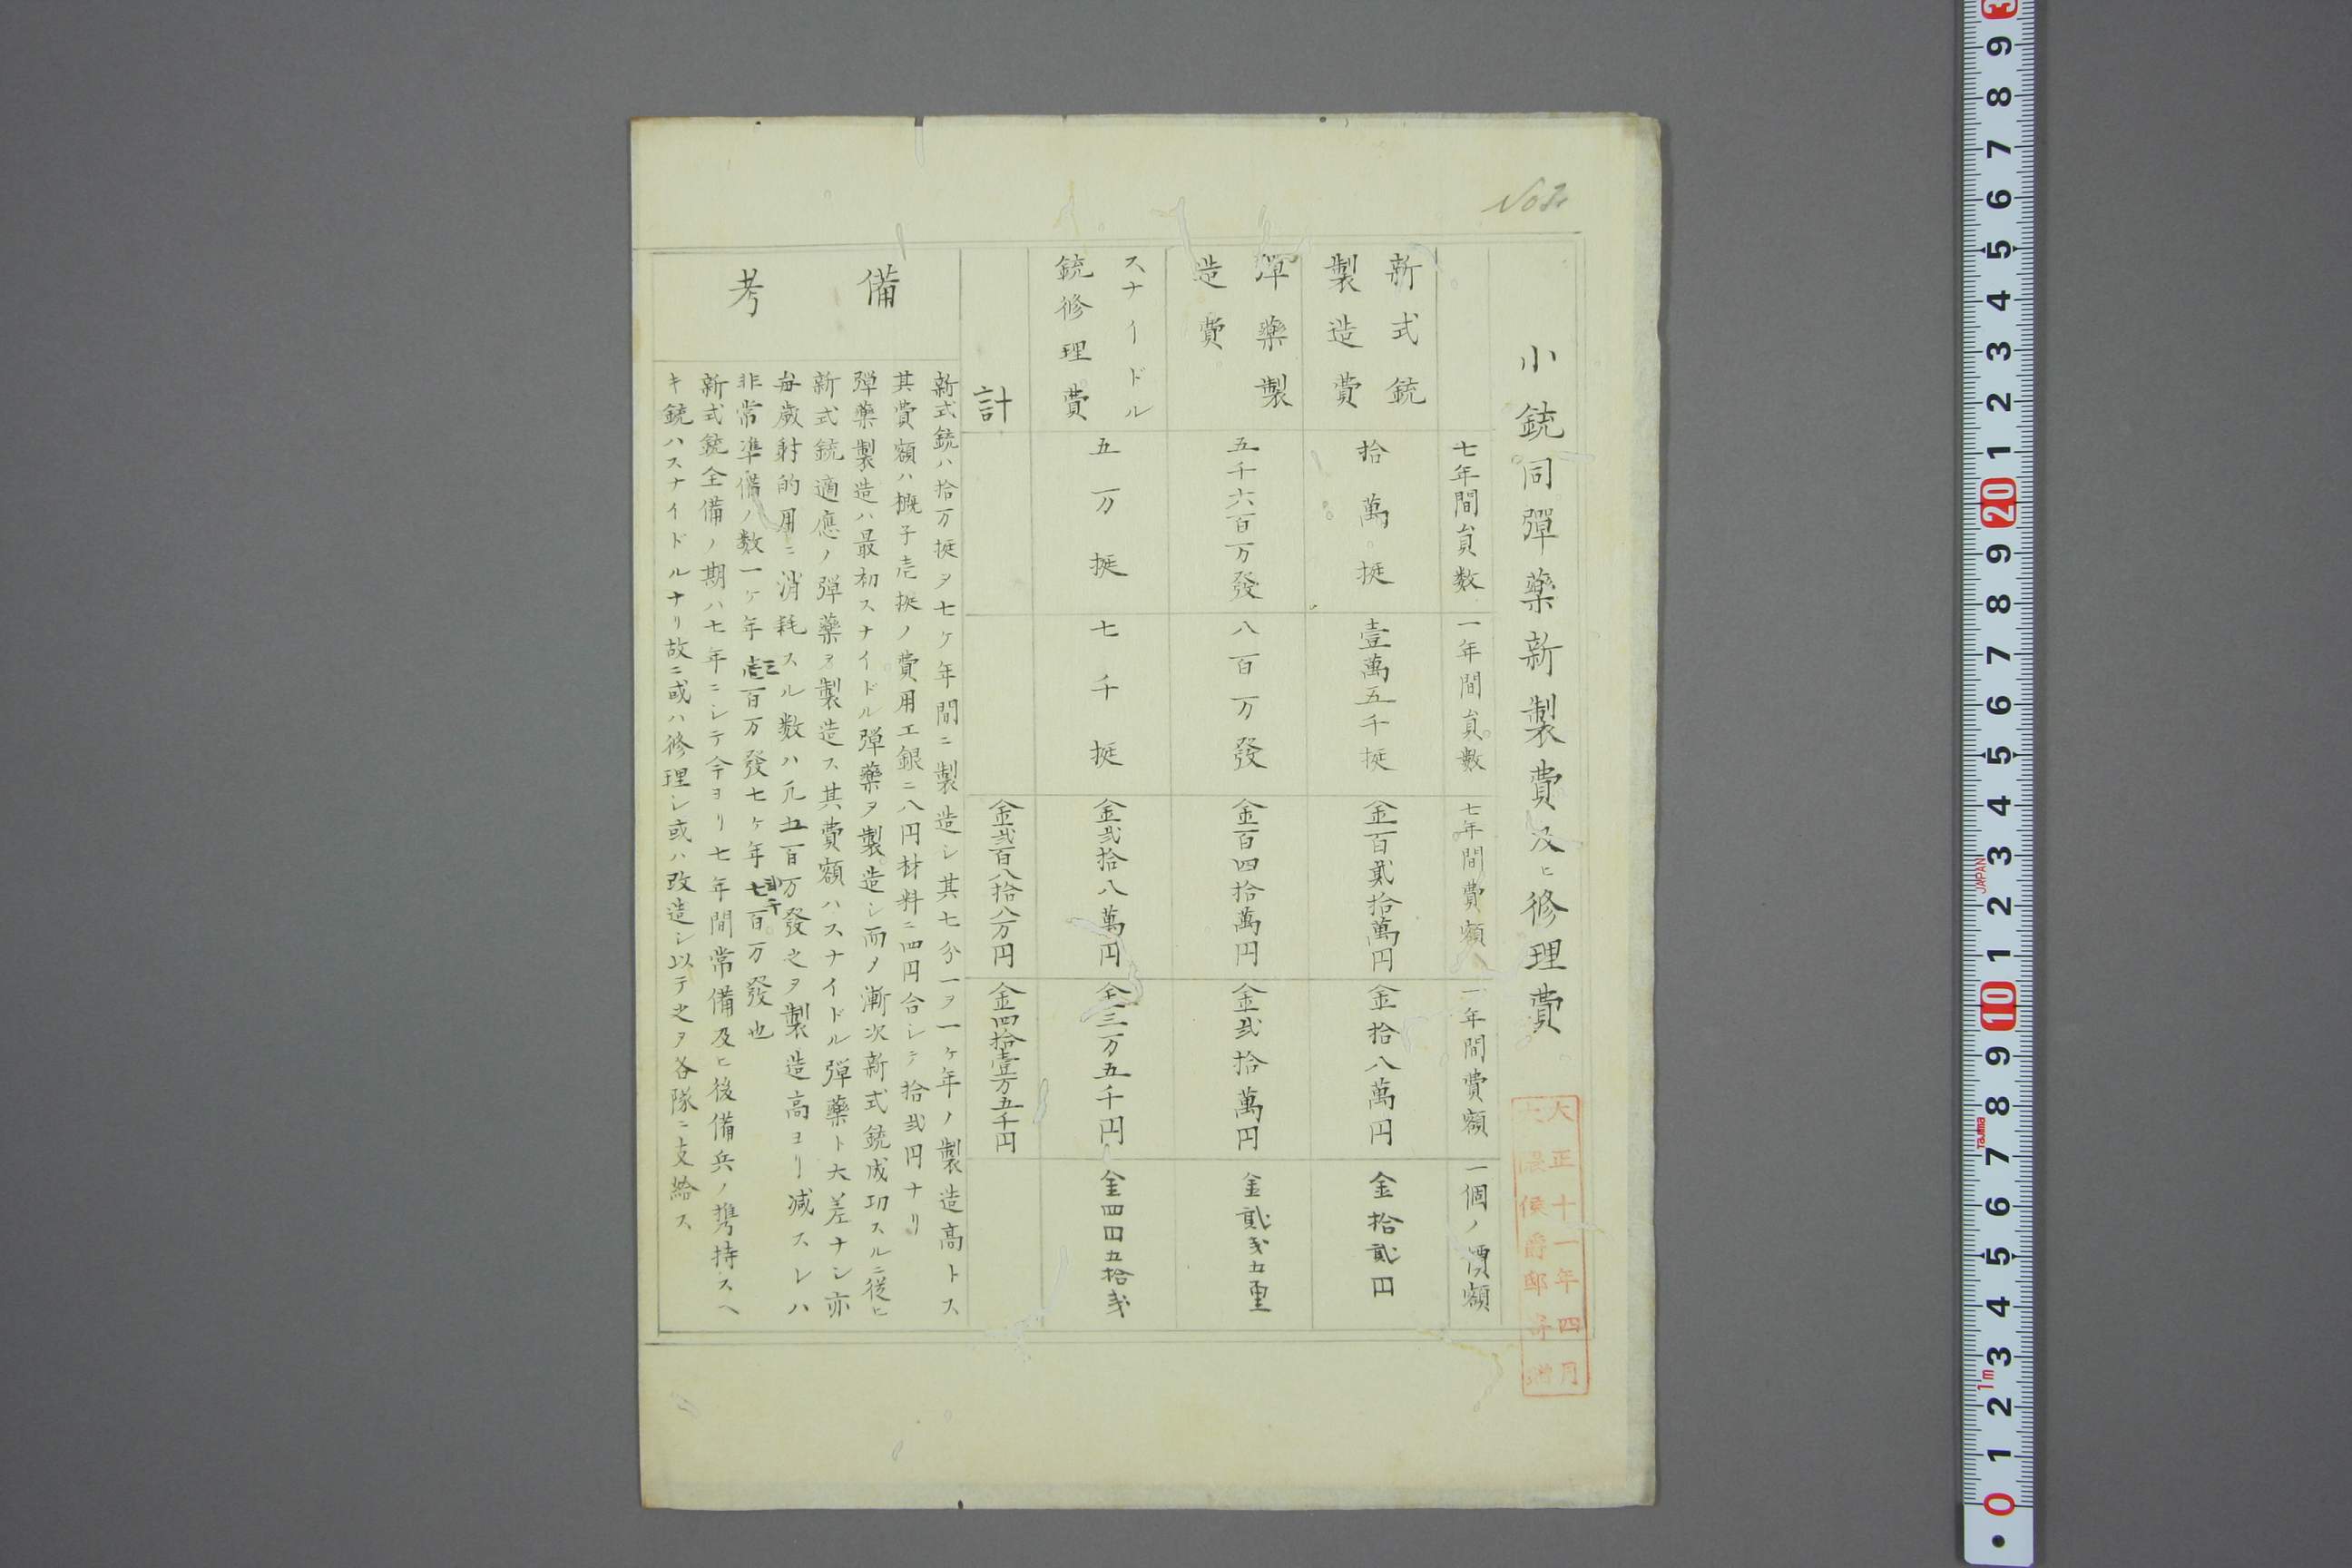 小銃同彈藥新製費及ヒ修理費
七年間員数
一年間員數
七年間費額
一年間費額
一個ノ價額
新式銃
製造費
拾萬挺
壹萬五千挺
金百貳拾萬円
金拾八萬円
金拾貳円
彈藥製
造費
五千六百万發
八百万發
金百四拾萬円
金弐拾萬円
金貳戔五厘
スナイドル
銃修理費
五万挺
七千挺
金弐拾八萬円
金三万五千円
金四円五拾戔
計
金弐百八拾八万円
金四拾壹万五千円
備考
新式銃ハ拾万挺ヲ七ケ年間ニ製造シ其七分一ヲ一ケ年ノ製造高トス
其費額ハ概子壱挺ノ費用工銀ニ八円材料ニ四円合シテ拾弐円ナリ
弾藥製造ハ最初スナイドル弾藥ヲ製造シ而ノ漸次新式銃成功スルニ従ヒ
新式銃適應ノ弾藥ヲ製造ス其費額ハスナイドル弾藥ト大差ナシ亦
毎歳射的用ニ消耗スル数ハ凡五百万發之ヲ製造高ヨリ减スレハ
非常準備ノ数一ケ年三百万發七ケ年弐千百万發也
新式銃全備ノ期ハ七年ニシテ今ヨリ七年間常備及ヒ後備兵ノ携持スヘ
キ銃ハスナイドルナリ故ニ或ハ修理シ或ハ改造シ以テ之ヲ各隊ニ支給ス
大正十一年四月
大隈侯爵邸寄贈
3 9 8 7 6 5 4 3 2 1 20 9 8 7 6 5 4 3 2 1 10 9 8 7 6 5 4 3 2 1 0
JAPAN
Tajima
1m